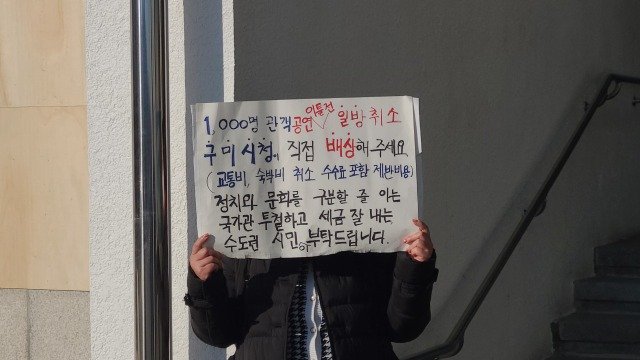 1,000명 관객 공연 이틀전 일방취소
구미시청, 직접 배상해주세요
(교통비, 숙박비 취소 수수료 포함 제반비용)
정치와 문화를 구분할 줄 아는
국가관 투철하고 세금 잘 내는
수도권 시민이 부탁드립니다.